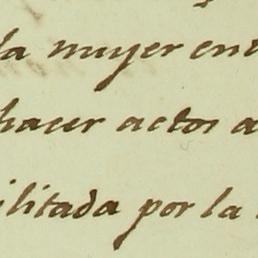 la muger en
hacer actos a
ilitada por la